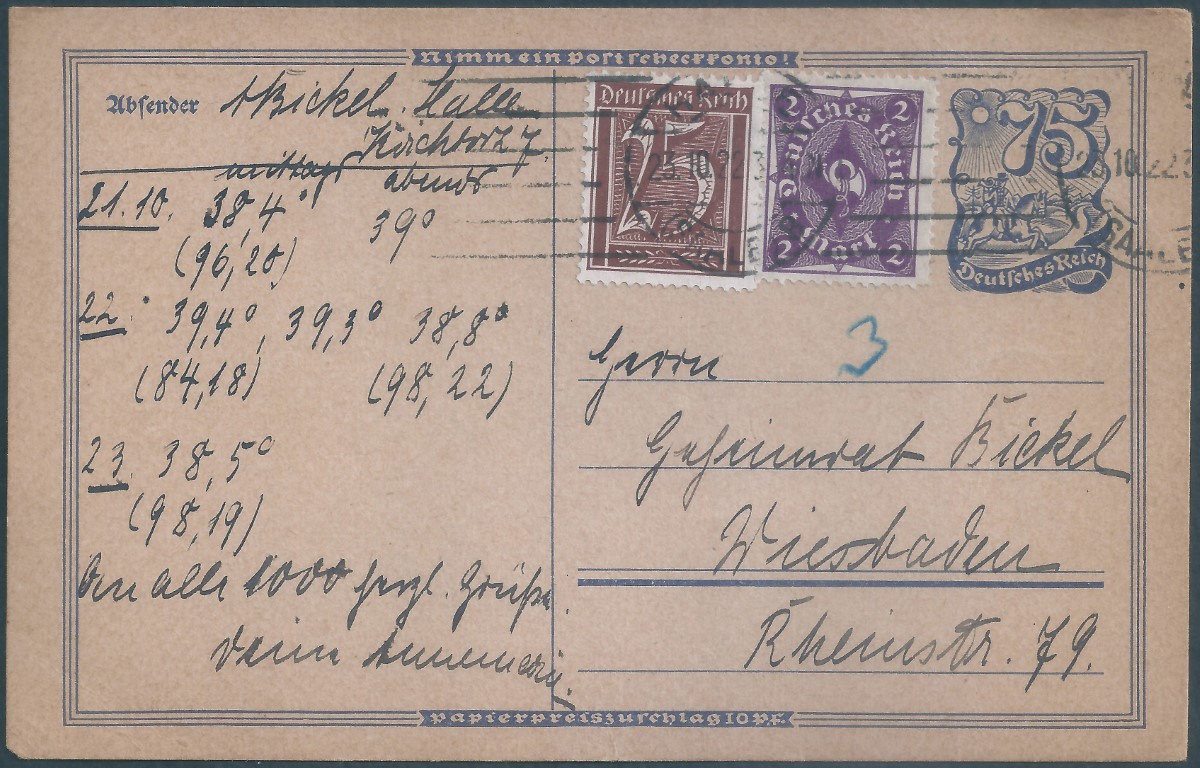 Nimm ein Postscheckkonto!
Absender A Bickel. Halle
Kirchtorstr 7.
mittags abends
21.10. 38,4° 39°
(96,20)
22. 39,4°, 39,3° 38,8°
(84,18) (98,22)
23. 38,5°
(98,19)
An alle 1000 herzl. Grüße
Deine Annemarie.
Deutsches Reich
25
2 2
Deutsches Reich
2 Mark 2
75
Deutsches Reich
23.10.22.3
23.10.22.3
HALLE
3
Herrn
Geheimrat Bickel
Wiesbaden
Rheinstr. 79.
Papierpreiszuschlag 10 Pf.